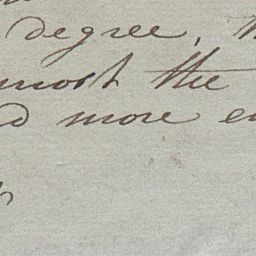 degree,
most the
more